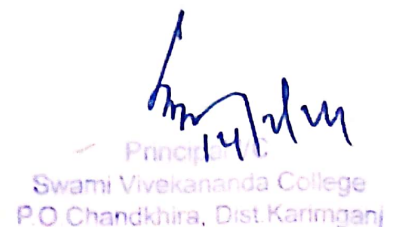 Principal I/C
Swami Vivekananda College
P.O Chandkhira, Dist. Karimganj